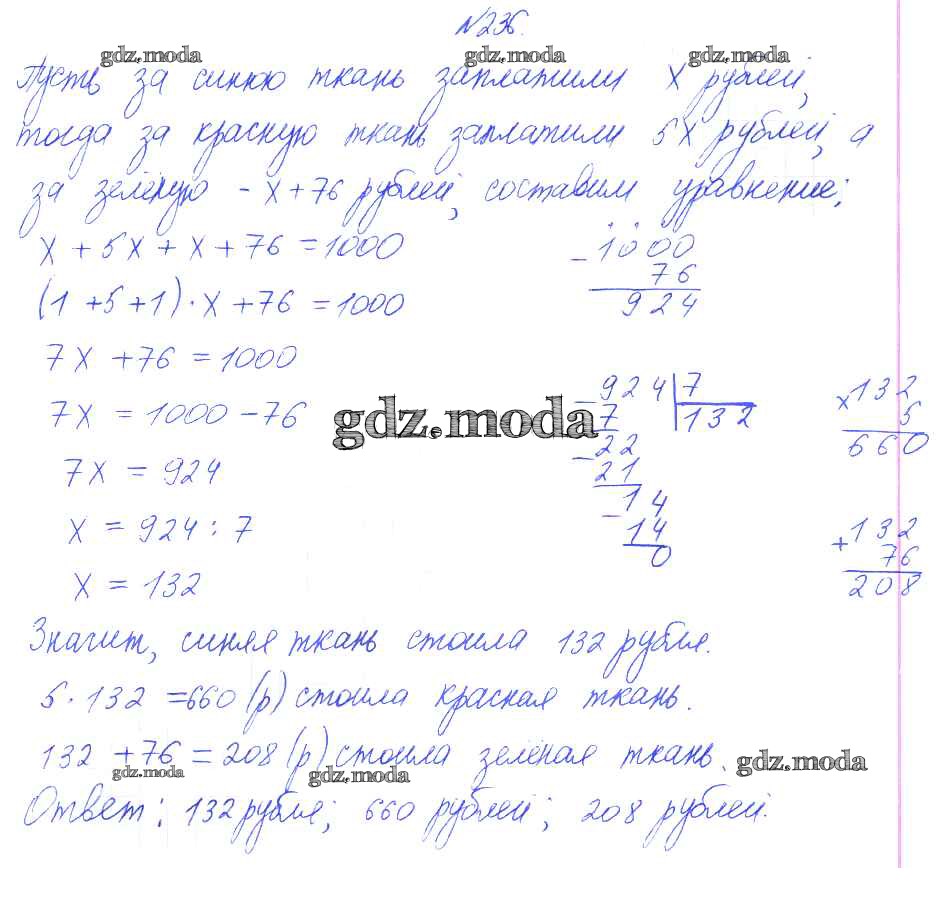 №236.
gdz.moda gdz.moda gdz.moda
Пусть за синюю ткань заплатили x рублей,
тогда за красную ткань заплатили 5x рублей, а
за зелёную - x + 76 рублей, составим уравнение:
x + 5x + x + 76 = 1000
(1 + 5 + 1) · x + 76 = 1000
7x + 76 = 1000
7x = 1000 - 76
7x = 924
x = 924 : 7
x = 132
- 1000
76
924
gdz.moda
- 924 | 7
7 132
- 22
21
- 14
14
0
x 132
5
660
+ 132
76
208
Значит, синяя ткань стоила 132 рубля.
5 · 132 = 660 (р) стоила красная ткань.
132 + 76 = 208 (р) стоила зелёная ткань.
gdz.moda gdz.moda gdz.moda
Ответ: 132 рубля; 660 рублей; 208 рублей.